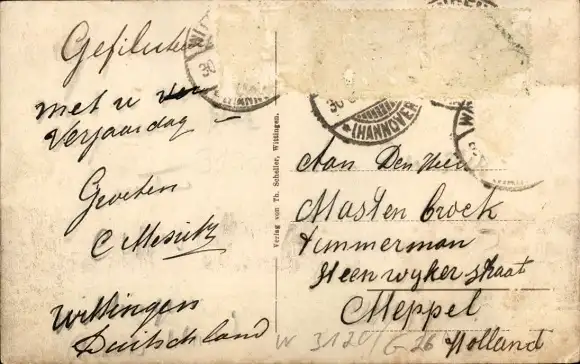 Gefiliciteerd
met u ver
Verjaardag
Groeten
C Mesritz
Wittingen
Duitschland
Verlag von Th. Scheller, Wittingen.
WITT
30
(HANNOVER)
30
*(HANNOVER
Aan Den Heer
Mastenbroek
timmerman
Steenwykerstraat
Meppel
Holland
W 3120/G 26